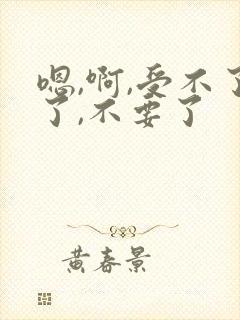 嗯,啊,受不了
了,不要了
黄春景